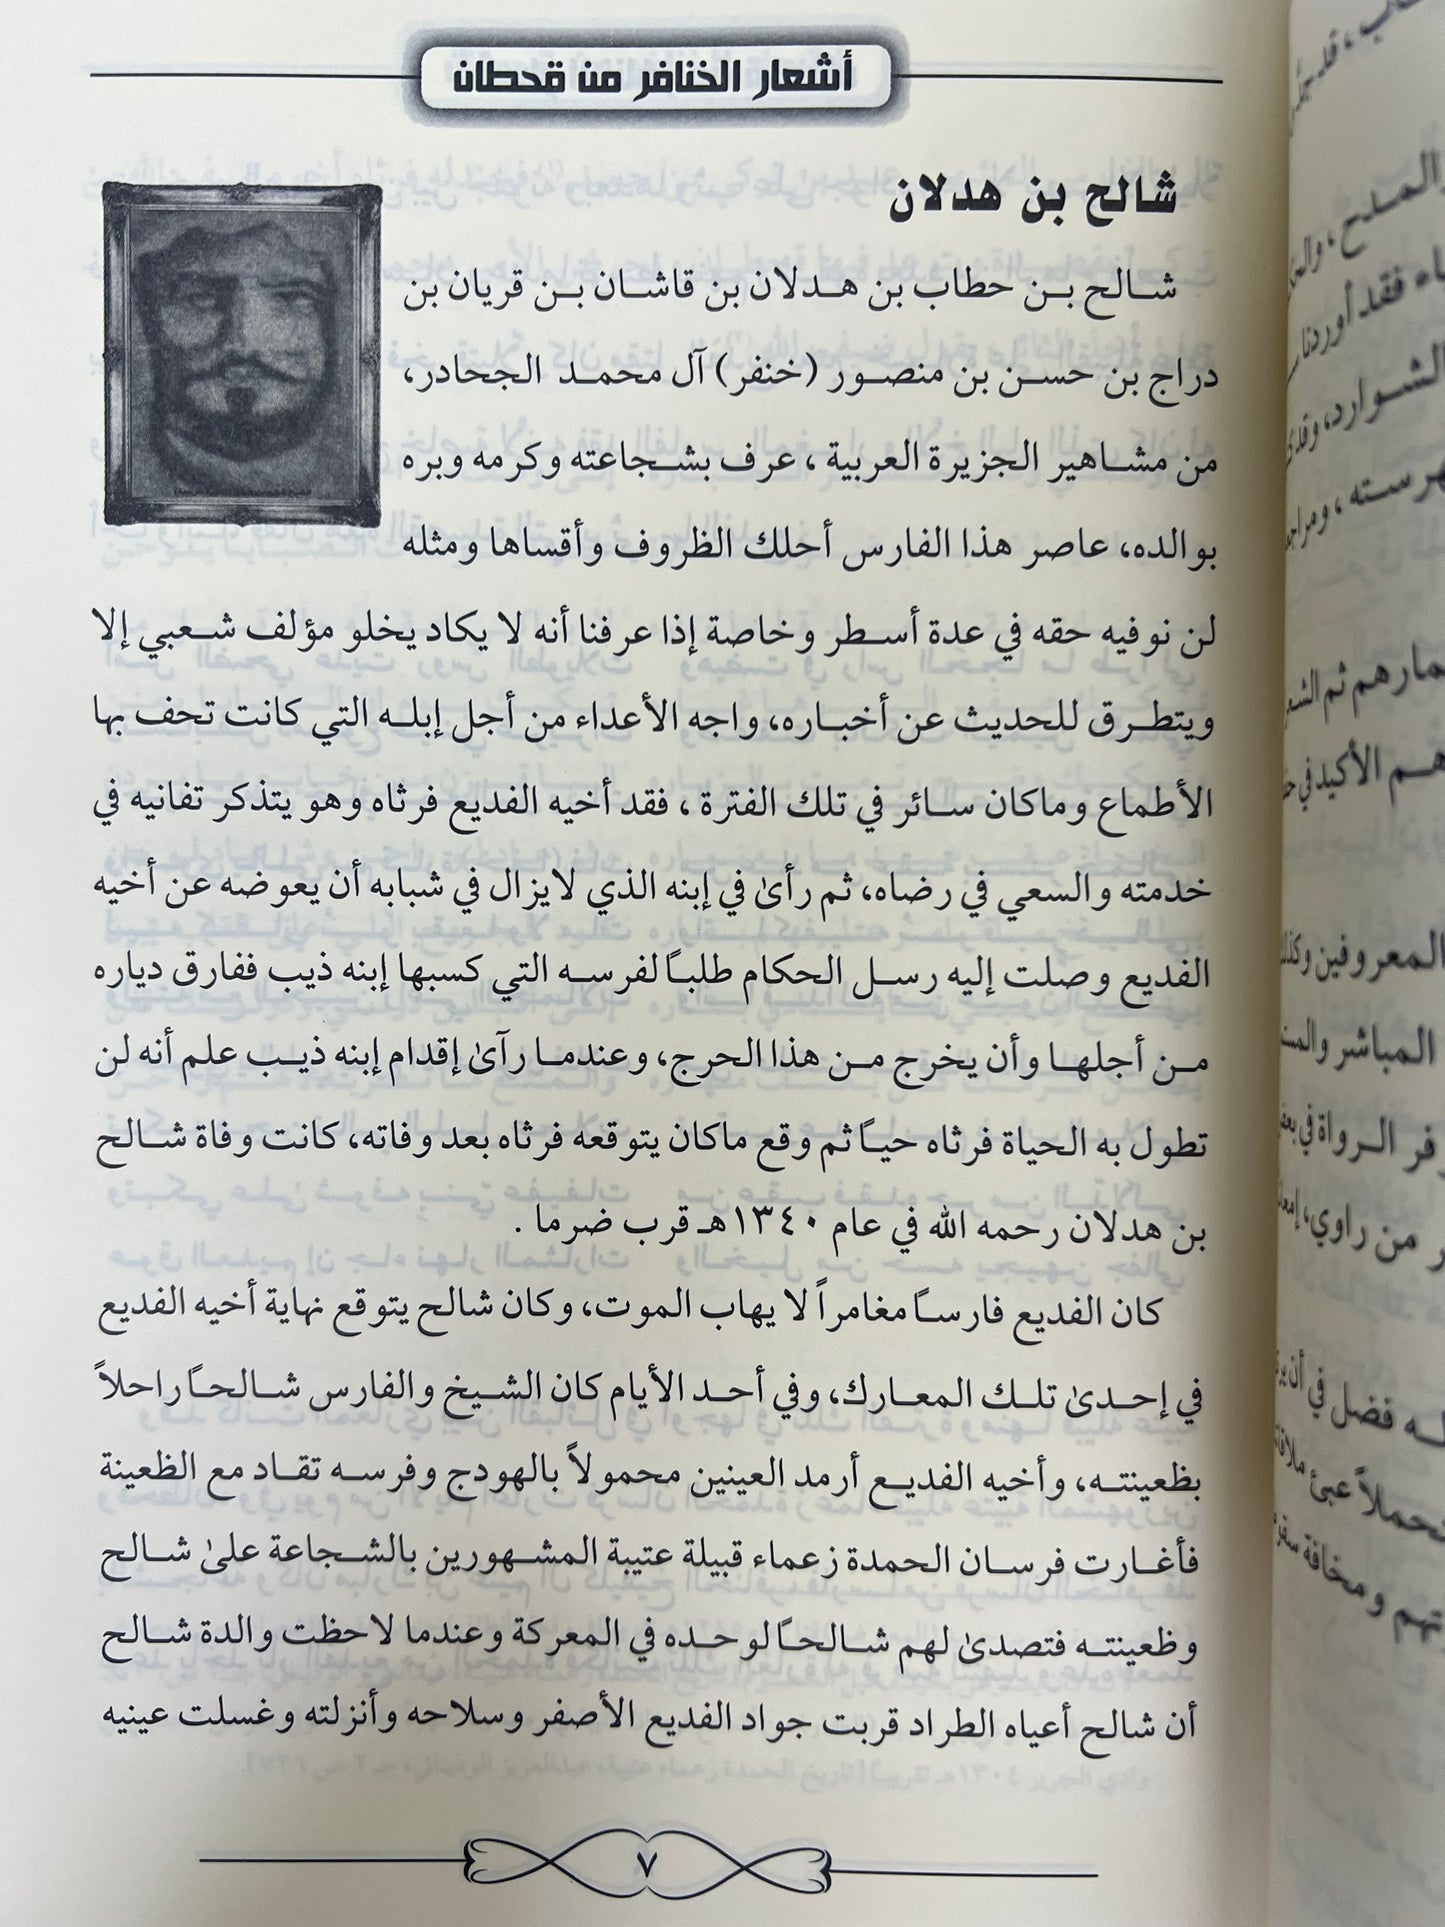 أشعار الخنافر من قحطان
شالح بن هدلان
شالح بن حطاب بن هدلان بن قاشان بن قريان بن
دراج بن حسن بن منصور (خنفر) آل محمد الجحادر،
من مشاهير الجزيرة العربية ، عرف بشجاعته وكرمه وبره
بوالده، عاصر هذا الفارس أحلك الظروف وأقساها ومثله
لن نوفيه حقه في عدة أسطر وخاصة إذا عرفنا أنه لا يكاد يخلو مؤلف شعبي إلا
ويتطرق للحديث عن أخباره، واجه الأعداء من أجل إبله التي كانت تحف بها
الأطماع وماكان سائر في تلك الفترة ، فقد أخيه الفديع فرثاه وهو يتذكر تفانيه في
خدمته والسعي في رضاه، ثم رأىٰ في إبنه الذي لايزال في شبابه أن يعوضه عن أخيه
الفديع وصلت إليه رسل الحكام طلباً لفرسه التي كسبها إبنه ذيب ففارق دياره
من أجلها وأن يخرج من هذا الحرج، وعندما رآىٰ إقدام إبنه ذيب علم أنه لن
تطول به الحياة فرثاه حياً ثم وقع ماكان يتوقعه فرثاه بعد وفاته، كانت وفاة شالح
بن هدلان رحمه الله في عام ١٣٤٠هـ قرب ضرما .
كان الفديع فارساً مغامراً لا يهاب الموت، وكان شالح يتوقع نهاية أخيه الفديع
في إحدىٰ تلك المعارك، وفي أحد الأيام كان الشيخ والفارس شالحاً راحلاً
بظعينته، وأخيه الفديع أرمد العينين محمولاً بالهودج وفرسه تقاد مع الظعينة
فأغارت فرسان الحمدة زعماء قبيلة عتيبة المشهورين بالشجاعة علىٰ شالح
وظعينته فتصدىٰ لهم شالحاً لوحده في المعركة وعندما لاحظت والدة شالح
أن شالح أعياه الطراد قربت جواد الفديع الأصفر وسلاحه وأنزلته وغسلت عينيه
٧